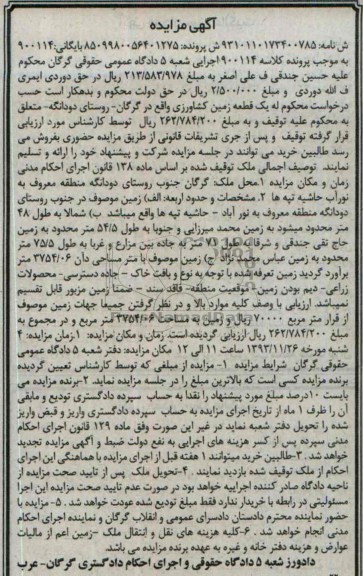 آگهی مزایده
ش نامه: ۹۳۱۰۱۱۰۱۷۳۴۰۰۷۸۵ ش پرونده: ۸۵۰۹۹۸۰۰۵۶۴۰۱۲۷۵ بایگانی: ۹۰۰۱۱۴
به موجب پرونده کلاسه ۹۰۰۱۱۴ اجرایی شعبه ۵ دادگاه عمومی حقوقی گرگان محکوم
علیه حسین چندقی ف علی اصغر به مبلغ ۲۱۳/۵۸۳/۹۷۸ ریال در حق دوردی ایمری
ف الله دوردی و مبلغ ۲/۵۰۰/۰۰۰ ریال در حق دولت محکوم و بدهکار است حسب
درخواست محکوم له یک قطعه زمین کشاورزی واقع در گرگان- روستای دودانگه- متعلق
به محکوم علیه توقیف و به مبلغ ۲۶۲/۷۸۴/۲۰۰ ریال توسط کارشناس مورد ارزیابی
قرار گرفته توقیف و پس از جری تشریفات قانونی از طریق مزایده حضوری بفروش می
رسد طالبین خرید می توانند در جلسه مزایده شرکت و پیشنهاد خود را ارائه و تسلیم
نمایند. توصیف اجمالی ملک توقیف شده بر اساس ماده ۱۳۸ قانون اجرای احکام مدنی
زمان و مکان مزایده ۱.محل ملک: گرگان جنوب روستای دودانگه منطقه معروف به
نورآب حاشیه تپه ها ۲. مشخصات و حدود اربعه: الف) زمین موصوف در جنوب روستای
دودانگه منطقه معروف به نور آباد - حاشیه تپه ها واقع میباشد ب) شمالا به طول ۴۸
متر محدود میشود به زمین محمد میرزایی و جنوبا به طول ۵۴/۵ متر محدود به زمین
حاج تقی جندقی و شرقا به طول ۷۱ متر به جاده بین مزارع و غربا به طول ۷۵/۵ متر
محدود به زمین عباس محمد نژاد ج) زمین موصوف با متر مساحی دان ۳۷۵۴/۰۶ متر
برآورد گردید زمین تعرفه شده با توجه به نوع و بافت خاک – جاده دسترسی- محصولات
زراعی- دیم بودن زمین - موقعیت منطقه- فاقد سند – ضمنا زمین مزبور قابل تقسیم
نمیباشد. ارزیابی با وصف کلیه موارد بالا و در نظر گرفتن جمیع جهات زمین موصوف
از قرار متر مربع ۷۰۰۰۰ ریال و زمین به مساحت ۳۷۵۴/۰۶ متر مربع و در مجموع به
مبلغ ۲۶۲/۷۸۴/۲۰۰ ریال ارزیابی گردیده است. زمان و مکان مزایده: ۱.زمان مزایده: ۴
شنبه مورخه ۱۳۹۳/۱۱/۲۶ ساعت ۱۱ الی ۱۲ مکان مزایده: دفتر شعبه ۵ دادگاه عمومی
حقوقی گرگان شرایط مزایده ۱- مزایده از مبلغی که توسط کارشناس تعیین گردیده
برنده مزایده کسی است که بالاترین مبلغ را در جلسه مزایده نماید. ۲-برنده مزایده می
بایست ۱۰درصد مبلغ مورد پیشنهاد را نقدا به حساب سپرده دادگستری تودیع و مابقی
آن را ظرف ۱ ماه از تاریخ اجرای مزایده به حساب سپرده دادگستری واریز و قبض واریز
شده را تحویل دفتر شعبه نماید در غیر این صورت وفق ماده ۱۲۹ قانون اجرای احکام
مدنی سپرده پس از کسر هزینه های اجرایی به نفع دولت ضبط و آگهی مزایده تجدید
خواهد شد. ۳-طالبین خرید میتوانند ۱ هفته قبل از اجرای مزایده با هماهنگی این اجرای
احکام از ملک توقیف شده بازدید نمایند. ۴-تحویل ملک پس از تایید صحت مزایده از
ناحیه دادگاه صادر کننده اجراییه خواهد بود در صورت عدم تایید صحت مزایده این اجرا
مسئولیتی در رابطه با خریدار ندارد فقط مبلغ تودیع شده عودت خواهد شد. ۵-مزایده با
حضور نماینده محترم دادستان دادسرای عمومی و انقلاب گرگان و نماینده اجرای احکام
مدنی انجام خواهد شد. ۶-کلیه هزینه های نقل و انتقال ملک –زمین اعم از مالیات
عوارض و هزینه دفتر خانه و غیره به عهده برنده مزایده می باشد.
دادورز شعبه ۵ دادگاه حقوقی و اجرای احکام دادگستری گرگان- عرب